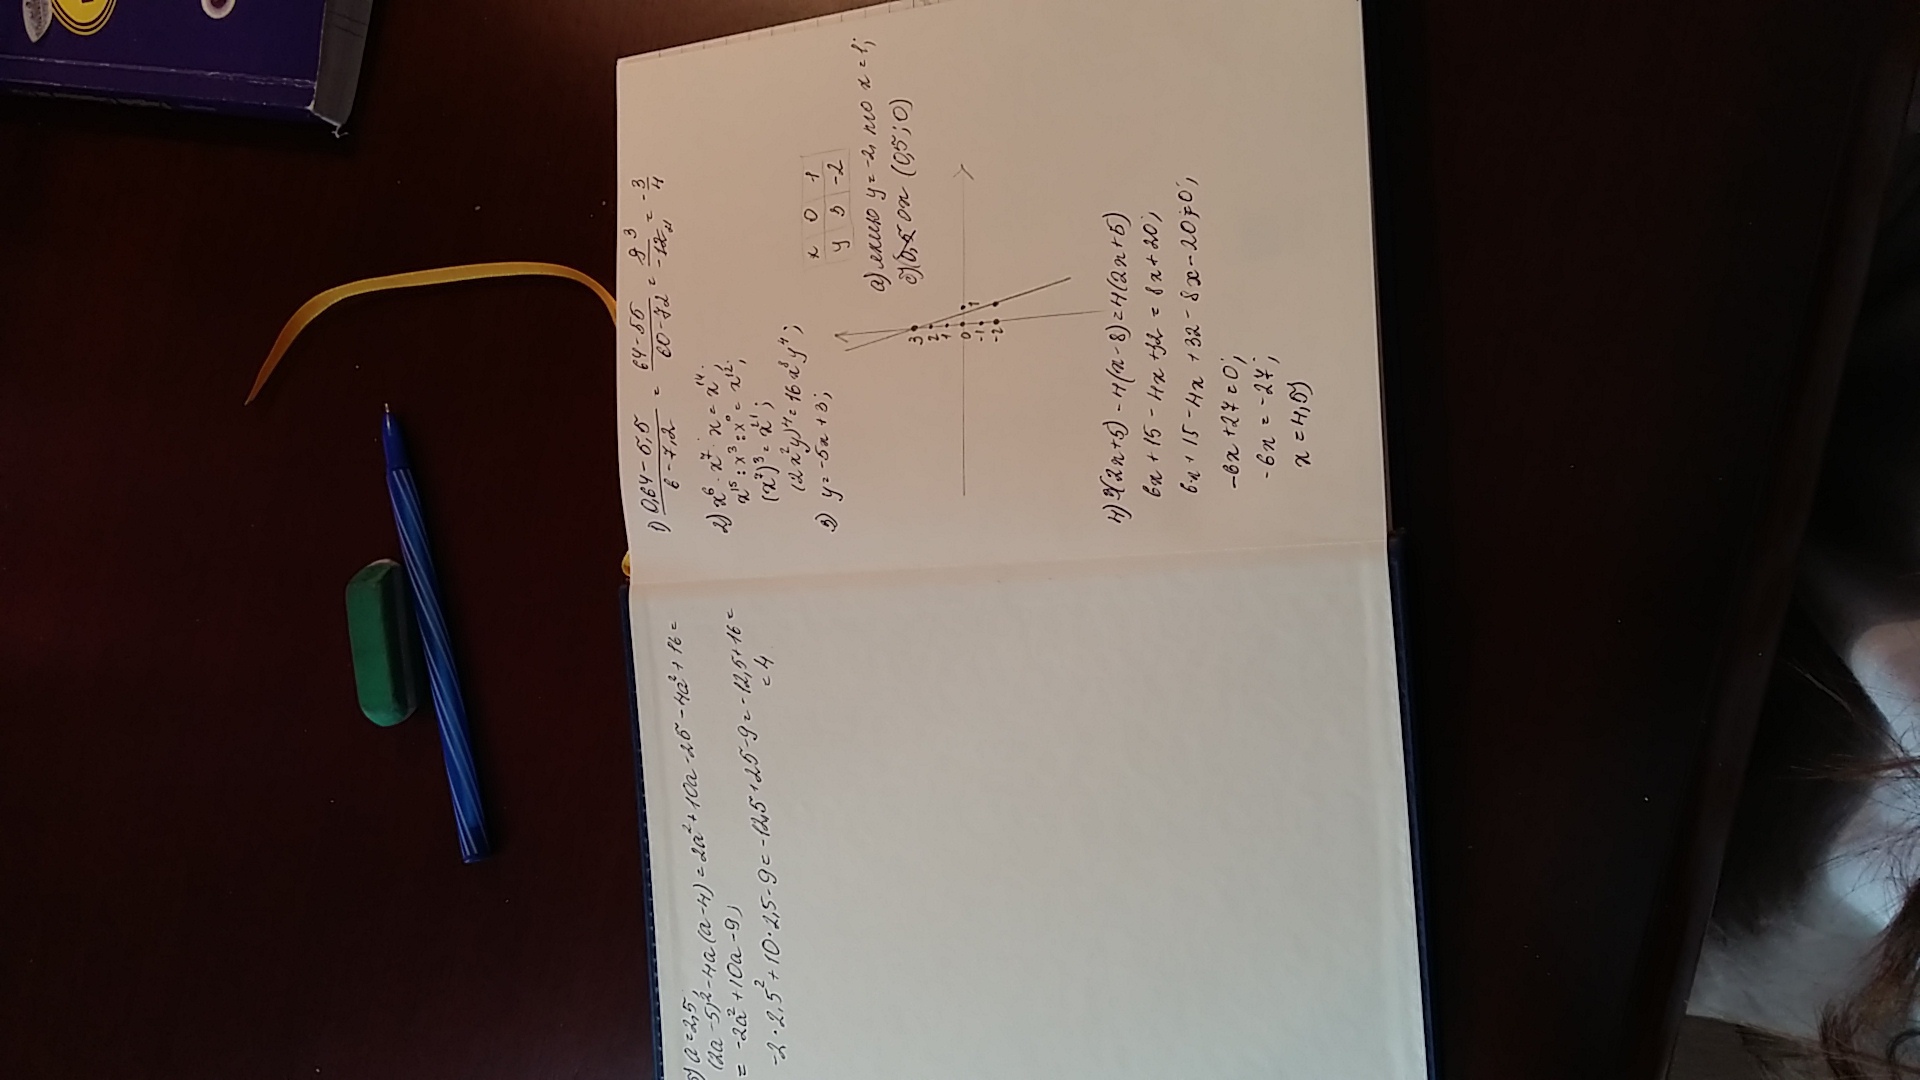 1) (0,64-5,5)/(6-7,2) = (64-55)/(60-72) = 9³/-12₄ = -3/4
2) x⁶·x⁷·x=x¹⁴;
x¹⁵:x³:x⁰=x¹²;
(x⁷)³=x²¹;
(2x²y)⁴=16x⁸y⁴;
3) y=-5x+3;
x 0 1
y 3 -2
а) если y=-2, то x=1;
ox (0,5;0)
3
2
1
0 1
-1
-2
4) 3(2x+5)-4(x-8)=4(2x+5)
6x+15-4x+32=8x+20;
6x+15-4x+32-8x-20=0;
-6x+27=0;
-6x=-27;
x=4,5)
5) a=2,5
(2a-5)²-4a(a-4)=2a²+10a-25-4a²+16=
=-2a²+10a-9;
-2·2,5²+10·2,5-9=-12,5+25-9=-12,5+16=
=4